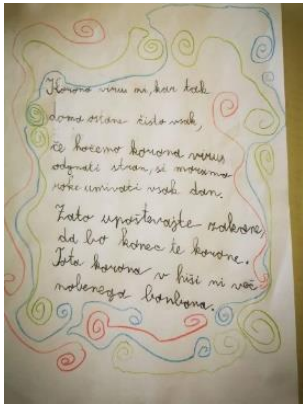 Korona virus ni, kar tak
doma ostane čisto vsak,
če hočemo korona virus
odgnati stran, si moramo
roke umivati vsak dan.
Zato upoštevajte zakone,
da bo konec te korone.
Ista korona v hiši ni več
nobenega bonbona.